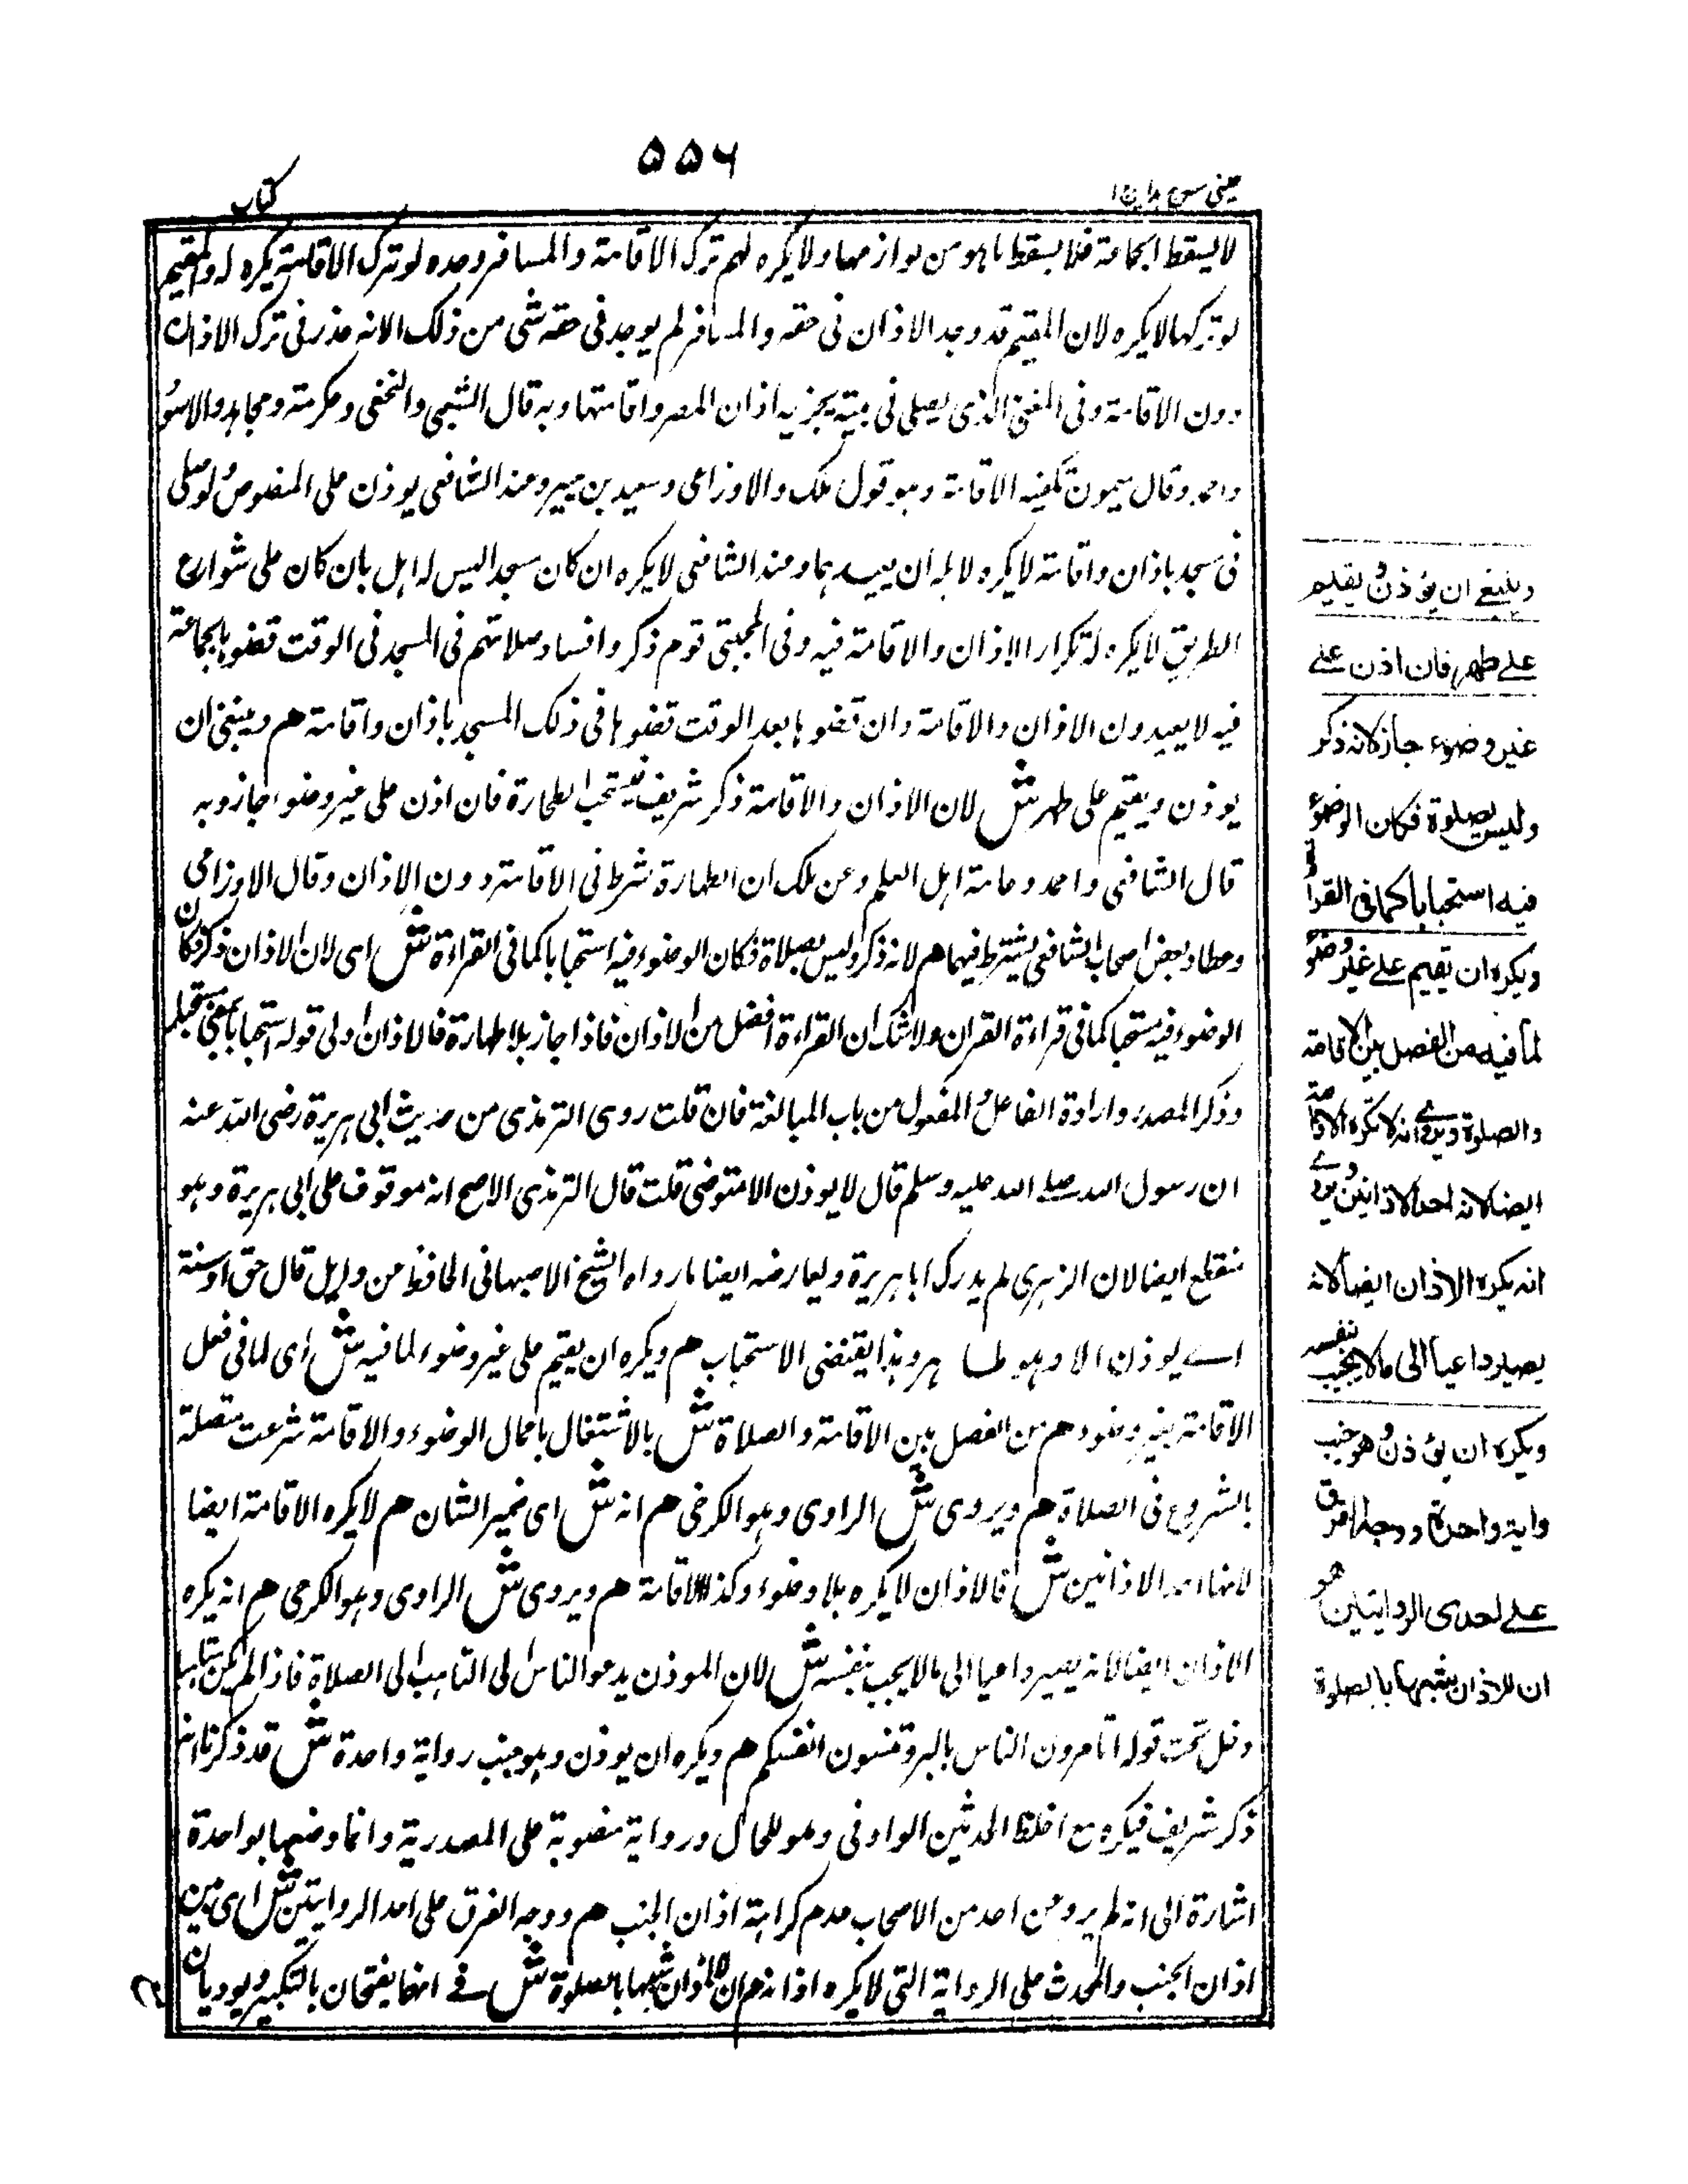 ۵۵۶
عینی شرح ہدایہ ج ۱
کتاب
لا یسقط الجماعة فلا یسقط ما ہو من لوازمہا ولا یکرہ لہم ترک الاقامة والمسافر وحدہ لو ترک الاقامة یکرہ لہ والمقیم
لو ترکہا لا یکرہ لان المقیم قد وجد الاذان فی حقہ والمسافر لم یوجد فی حقہ شی من ذلک الا انہ عذر فی ترک الاذان
دون الاقامة وفی المغنی الذی یصلی فی بیتہ یجزیہ اذان المصر واقامتہا وبہ قال الشعبی والنخعی وعکرمة ومجاہد والاسود
واحمد وقال میمون تکفیہ الاقامة وہو قول ملک والاوزاعی وسعید بن جبیر وعند الشافعی یوذن علی المنصوص ولو صلی
فی مسجد باذان واقامة لا یکرہ لا لہ ان یعیدہما وعند الشافعی لا یکرہ ان کان مسجدا لیس لہ اہل بان کان علی شوارع
الطریق لا یکرہ لہ تکرار الاذان والاقامة فیہ وفی المجتبی قوم ذکروا فساد صلاتہم فی المسجد فی الوقت قضوہا بجماعة
فیہ لا یعیدون الاذان والاقامة وان قضوہا بعد الوقت قضوہا فی ذلک المسجد باذان واقامة هم وینبغی ان
یوذن ویقیم علی طہر ش لان الاذان والاقامة ذکر شریف فیستحب الطہارة فان اذن علی غیر وضوء جاز وبہ
قال الشافعی واحمد وعامة اہل العلم وعن ملک ان الطہارة شرط فی الاقامة دون الاذان وقال الاوزاعی
وعطاء وبعض اصحاب الشافعی یشترط فیہما هم لانہ ذکر ولیس بصلاة فکان الوضوء فیہ استحبابا کما فی القراءة ش ای لان الاذان ذکر فکان
الوضوء فیہ مستحبا کما فی قراءة القران ولا شک ان القراءة افضل من الاذان فاذا جاز بلا طہارة فالاذان اولی قولہ استحبابا بمعنی مستحبا
وذکر المصدر وارادة الفاعل والمفعول من باب المبالغة فان قلت روی الترمذی من حدیث ابی ہریرة رضی اللہ عنہ
ان رسول اللہ صلے اللہ علیہ وسلم قال لا یوذن الا متوضی قلت قال الترمذی الاصح انہ موقوف علی ابی ہریرة وہو
منقطع ایضا لان الزہری لم یدرک ابا ہریرة ویعارضہ ایضا ما رواہ الشیخ الاصبہانی الحافظ عن وایل قال حق او سنة
اے یوذن الا وہو طاہر وہذا یقتضی الاستحباب هم ویکرہ ان یقیم علی غیر وضوء لما فیہ ش ای لما فی فعل
الاقامة بغیر وضوء هم من الفصل بین الاقامة والصلاة ش بالاشتغال باعمال الوضوء والاقامة شرعت متصلة
بالشروع فی الصلاة هم ویروی ش الراوی وہو الکرخی هم انہ ش ای ضمیر الشان هم لا یکرہ الاقامة ایضا
لانہا احد الاذانین ش فالاذان لا یکرہ بلا وضوء وکذا الاقامة هم ویروی ش الراوی وہو الکرخی هم انہ یکرہ
الاذان ایضا لانہ یصیر داعیا الی ما لا یجیب بنفسہ ش لان الموذن یدعو الناس الی التاہب الی الصلاة فاذا لم یکن متاہبا
دخل تحت قولہ اتامرون الناس بالبر وتنسون انفسکم هم ویکرہ ان یوذن وہو جنب روایة واحدة ش قد ذکرنا انہ
ذکر شریف فیکرہ مع اغلظ الحدثین الواو فی وہو للحال وروایة منصوبة علی المصدریة وانما وصفہا بواحدة
اشارة الی انہ لم یرو عن احد من الاصحاب عدم کراہة اذان الجنب هم ووجہ الفرق علی احد الروایتین ش ای بین
اذان الجنب والمحدث علی الروایة التی لا یکرہ اذانہ هم ان للاذان شبہا بالصلوة ش فی انہما یفتتحان بالتکبیر ویودیان
وینبغے ان یؤذن ویقیم
علے طهر فان اذن علے
غیر وضوء جاز لانه ذکر
ولیس بصلوة فکان الوضوء
فیه استحبابا کما فی القرأة
ویکره ان یقیم علے غیر وضوء
لما فیه من الفصل بین الاقامة
والصلوة ویروے انه لا تکره الاقامة
ایضا لانه احد الاذانین ویروے
انه یکره الاذان ایضا لانه
یصیر داعیا الی ما لا یجیب بنفسه
ویکره ان یؤذن وهو جنب
روایة واحدة ووجه الفرق
علے احدی الروایتین هو
ان للاذان شبها بالصلوة